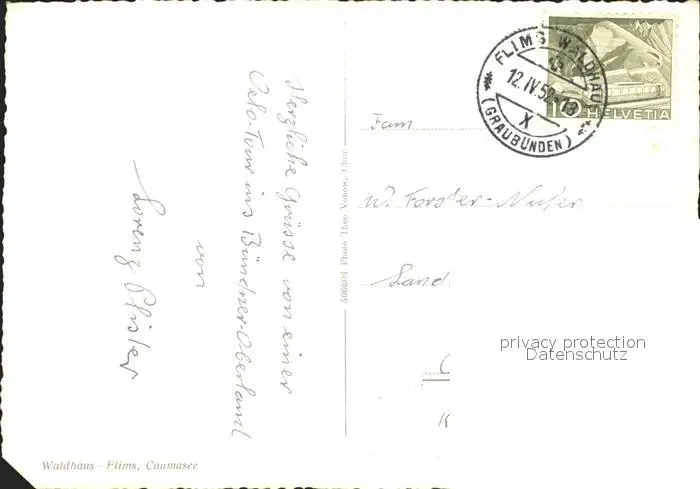 Herzliche Grüsse von einer
Velo-Tour ins Bündner-Oberland
von
Lorenz Pfister
Waldhaus - Flims, Caumasee
500801 Photo Theo Vonow, Chur
FLIMS WALDHAUS
12.IV.52-18
X
(GRAUBÜNDEN)
10 HELVETIA
Fam
W. Forster-Nufer
Land
privacy protection
Datenschutz